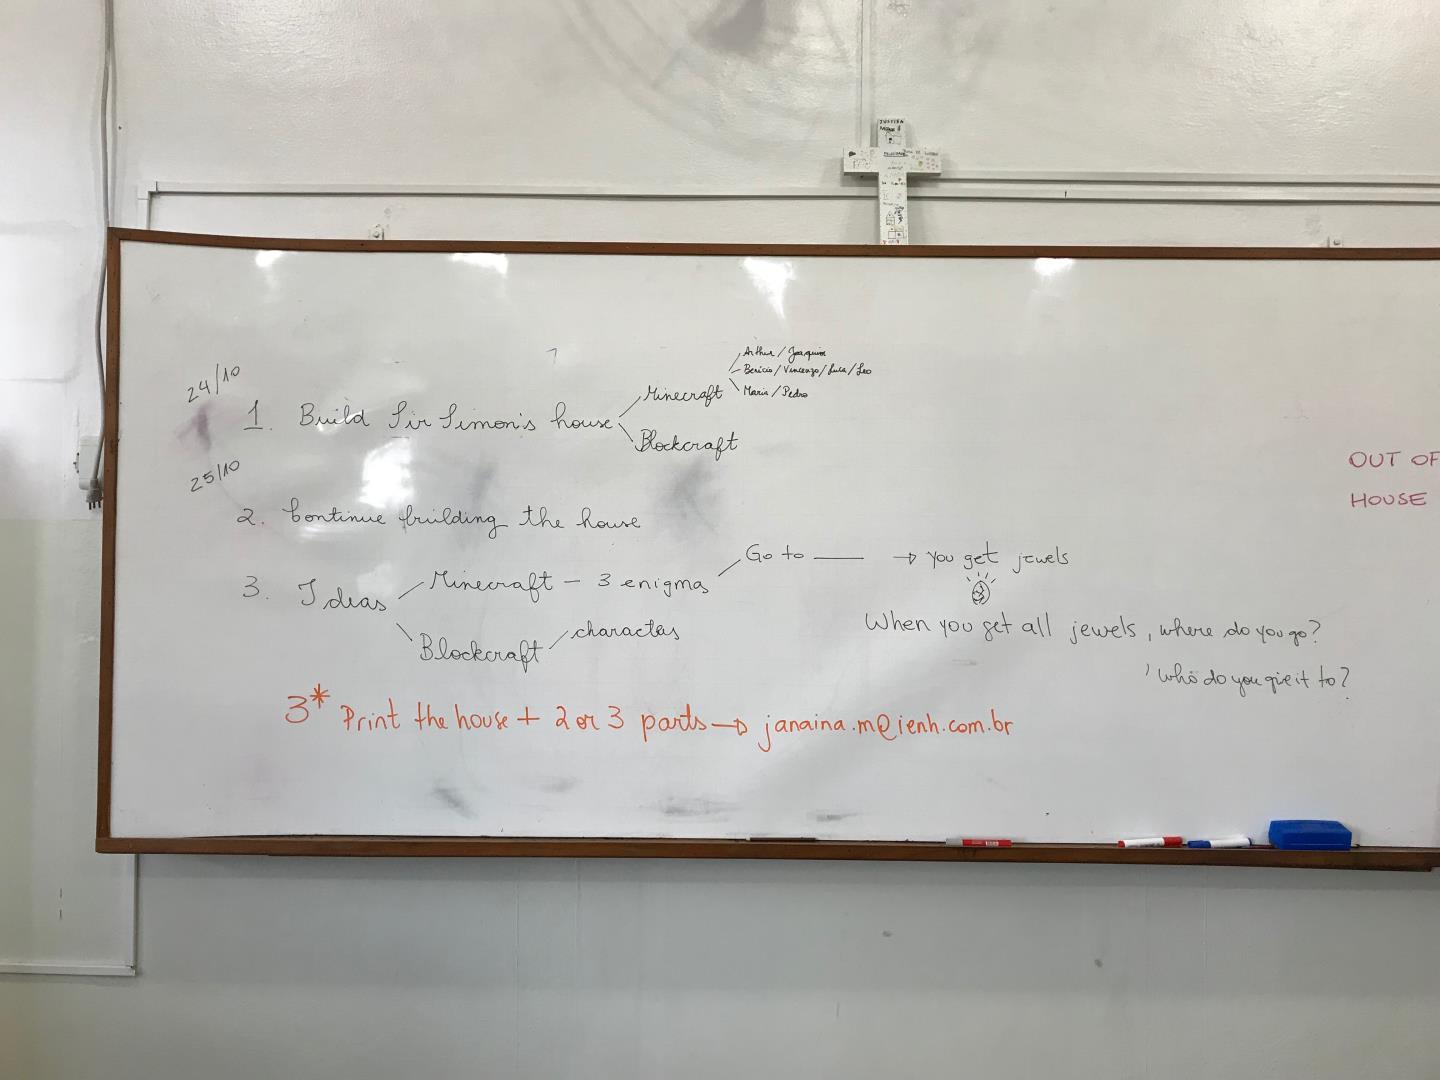 JUSTIÇA
24/10
Arthur / Joaquim
Benício / Vincenzo / Luca / Leo
Maria / Pedro
1. Build Sir Simon's house
Minecraft
Blockcraft
25/10
OUT OF
HOUSE
2. Continue building the house
3. Ideas
Minecraft - 3 enigmas
Go to ____ → you get jewels
Blockcraft
characters
When you get all jewels, where do you go?
, who do you give it to?
3* Print the house + 2 or 3 parts → janaina.m@ienh.com.br